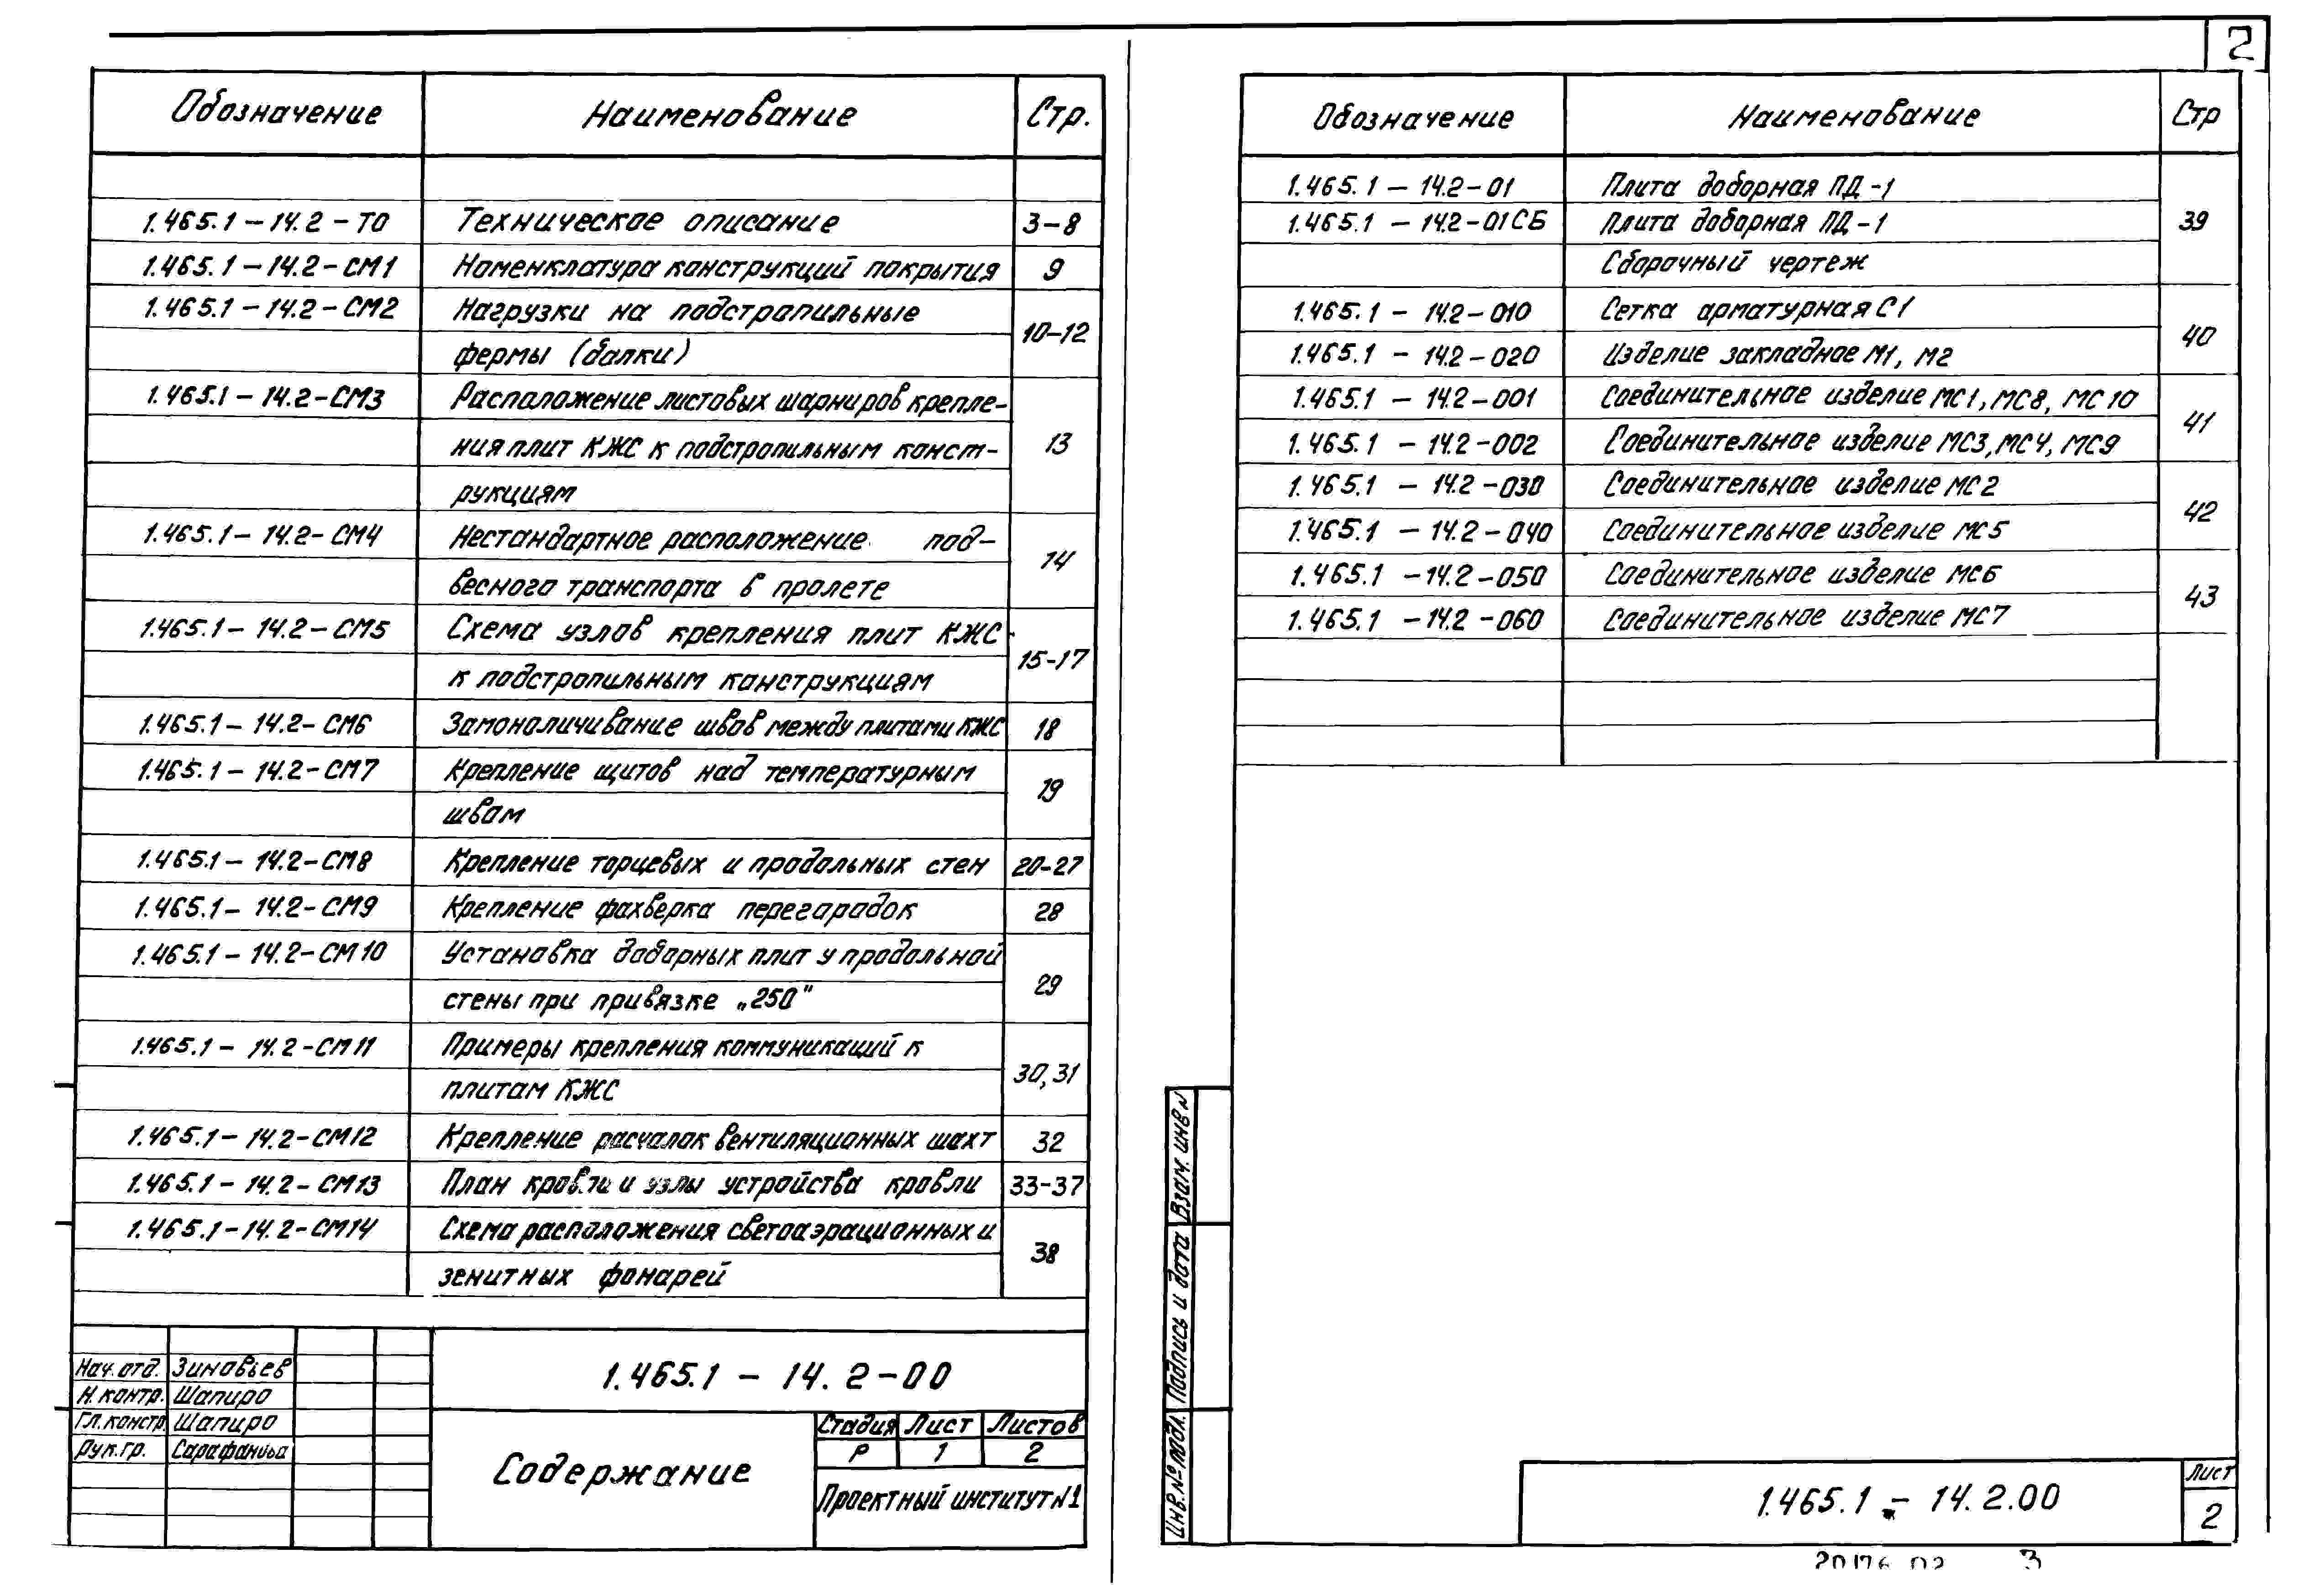 2
Обозначение Наименование Стр.
1.465.1-14.2-ТО Техническое описание 3-8
1.465.1-14.2-СМ1 Номенклатура конструкций покрытия 9
1.465.1-14.2-СМ2 Нагрузки на подстропильные
фермы (балки) 10-12
1.465.1-14.2-СМ3 Расположение листовых шарниров крепле-
ния плит КЖС к подстропильным конст- 13
рукциям
1.465.1-14.2-СМ4 Нестандартное расположение под-
весного транспорта в пролете 14
1.465.1-14.2-СМ5 Схема узлов крепления плит КЖС
к подстропильным конструкциям 15-17
1.465.1-14.2-СМ6 Замоноличивание швов между плитами КЖС 18
1.465.1-14.2-СМ7 Крепление щитов над температурным
швом 19
1.465.1-14.2-СМ8 Крепление торцевых и продольных стен 20-27
1.465.1-14.2-СМ9 Крепление фахверка перегородок 28
1.465.1-14.2-СМ10 Установка доборных плит у продольной
стены при привязке „250" 29
1.465.1-14.2-СМ11 Примеры крепления коммуникаций к
плитам КЖС 30,31
1.465.1-14.2-СМ12 Крепление расчалок вентиляционных шахт 32
1.465.1-14.2-СМ13 План кровли и узлы устройства кровли 33-37
1.465.1-14.2-СМ14 Схема расположения светоаэрационных и
зенитных фонарей 38
Нач. отд. Зиновьев
Н. контр. Шапиро
Гл. констр. Шапиро
Рук. гр. Сарафанова
1.465.1-14.2-00
Содержание
Стадия Лист Листов
Р 1 2
Проектный институт N1
Обозначение Наименование Стр
1.465.1-14.2-01 Плита доборная ПД-1
1.465.1-14.2-01СБ Плита доборная ПД-1 39
Сборочный чертеж
1.465.1-14.2-010 Сетка арматурная С1
1.465.1-14.2-020 Изделие закладное М1, М2 40
1.465.1-14.2-001 Соединительное изделие МС1, МС8, МС10
1.465.1-14.2-002 Соединительное изделие МС3, МС4, МС9 41
1.465.1-14.2-030 Соединительное изделие МС2
1.465.1-14.2-040 Соединительное изделие МС5 42
1.465.1-14.2-050 Соединительное изделие МС6
1.465.1-14.2-060 Соединительное изделие МС7 43
Взам. инв N
Подпись и дата
Инв. № подл.
1.465.1-14.2.00
Лист
2
20176 02 3